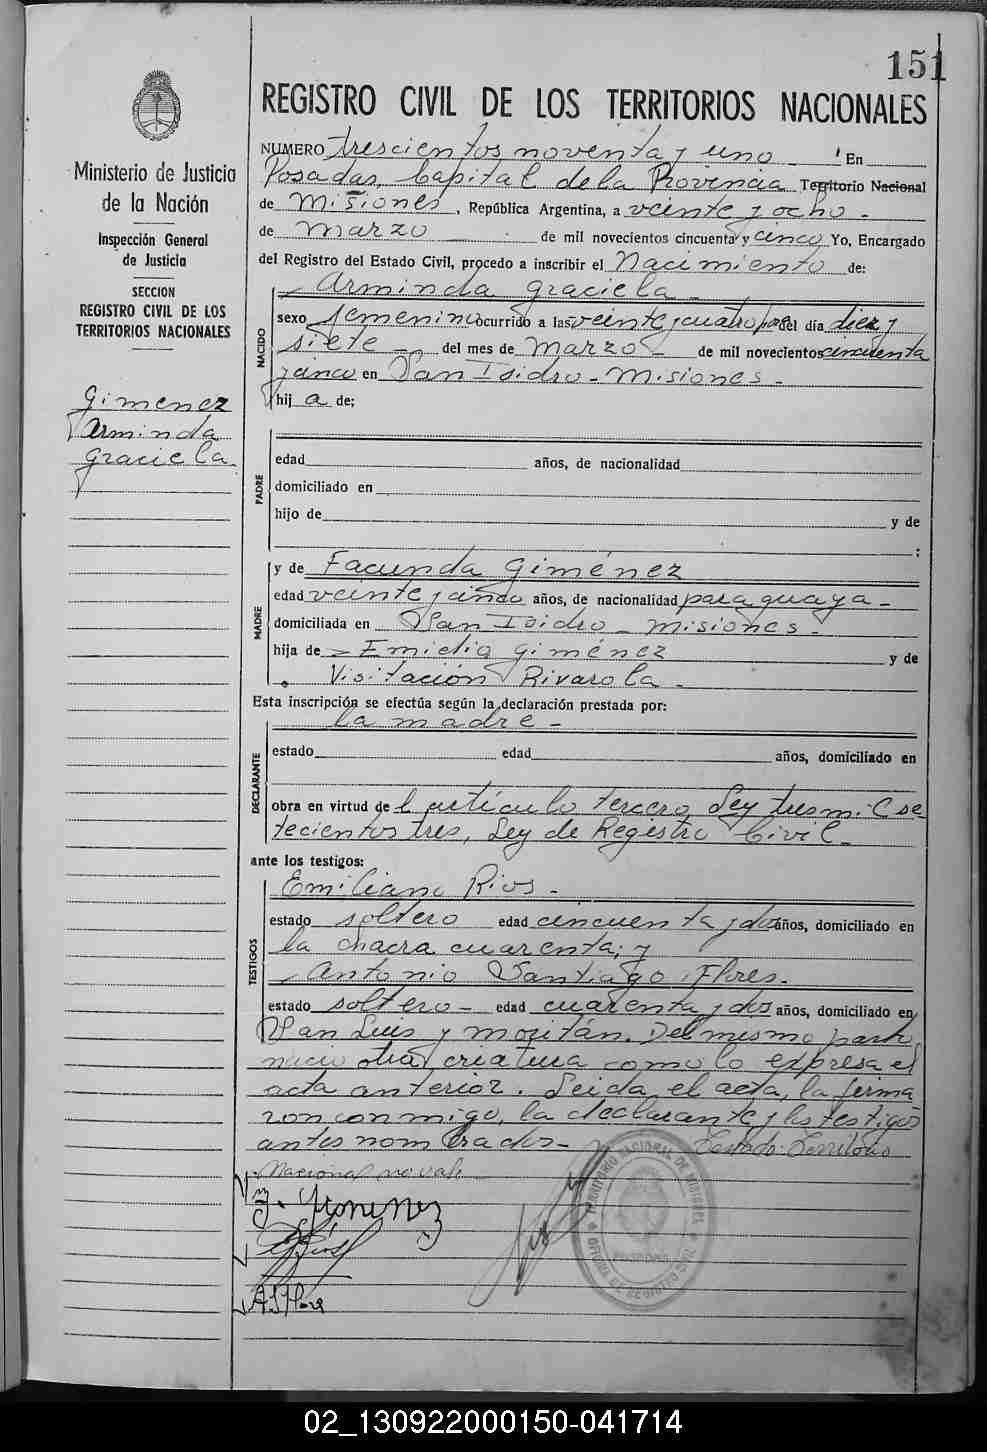 151
REGISTRO CIVIL DE LOS TERRITORIOS NACIONALES
Ministerio de Justicia
de la Nación
Inspección General
de Justicia
SECCION
REGISTRO CIVIL DE LOS
TERRITORIOS NACIONALES
Gimenez
Arminda
Graciela
NUMERO trescientos noventa y uno En
Posadas, Capital de la Provincia Territorio Nacional
de Misiones, República Argentina, a veinte y ocho
de Marzo de mil novecientos cincuenta y cinco Yo, Encargado
del Registro del Estado Civil, procedo a inscribir el Nacimiento de:
NACIDO
Arminda Graciela
sexo femenino ocurrido a las veinte y cuatro horas del día diez y
siete del mes de Marzo de mil novecientos cincuenta
y cinco en San Isidro - Misiones -
hij a de;
PADRE
edad años, de nacionalidad
domiciliado en
hijo de y de
:
MADRE
y de Facunda Giménez
edad veinte y cinco años, de nacionalidad paraguaya -
domiciliada en San Isidro - Misiones -
hija de Emidia Giménez y de
Visitación Rivarola -
Esta inscripción se efectúa según la declaración prestada por:
DECLARANTE
la madre -
estado edad años, domiciliado en
obra en virtud de l artículo tercero, Ley tres mil se
tecientos tres, Ley de Registro Civil -
ante los testigos:
TESTIGOS
Emiliano Rios -
estado soltero edad cincuenta y dos años, domiciliado en
la chacra cuarenta; y
Antonio Santiago Flores -
estado soltero - edad cuarenta y dos años, domiciliado en
San Luis y Moritán. Del mismo parto
nació otra criatura como lo expresa el
acta anterior. Leida el acta, la firma
ron conmigo, la declarante y los testigos
antes nombrados - Testado: Territorio
Nacional no vale
F. Gimenez
ERios
ASFlores
OFICINA DE REGISTRO CIVIL
02_130922000150-041714